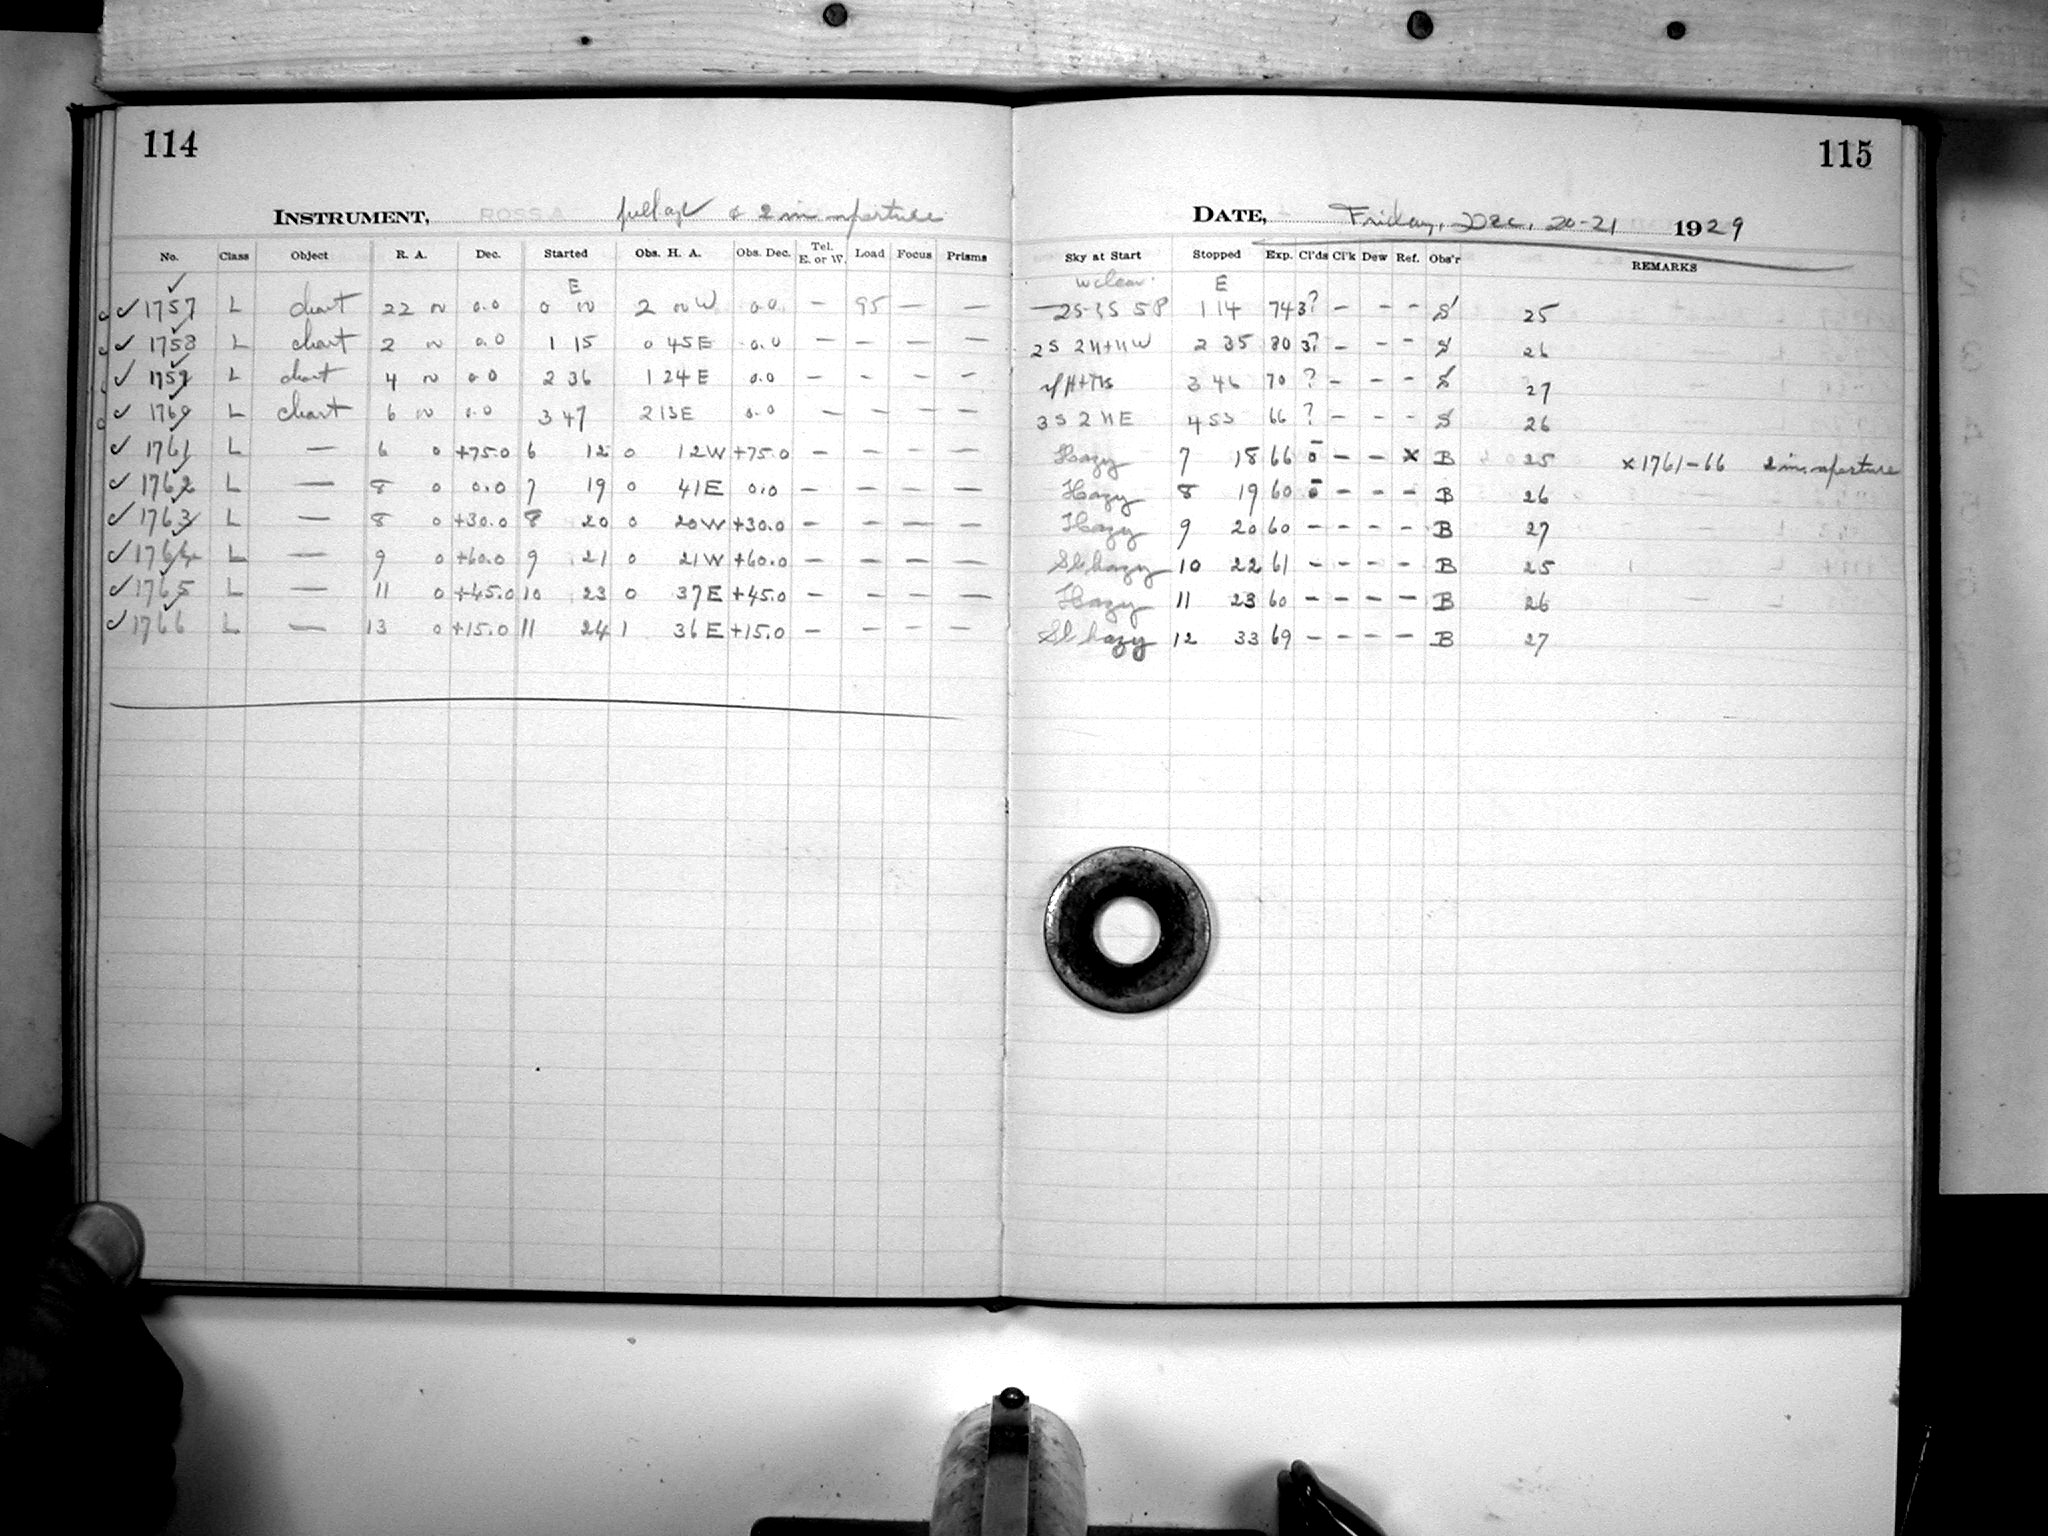 114
INSTRUMENT, ROSS A full ap & 2 in aperture
No. Class Object R. A. Dec. Started Obs. H. A. Obs. Dec. Tel. E. or W. Load Focus Prisms
E
✓ 1757 L chart 22 n 0.0 0 n 2 n W 0.0 – 95 — —
✓ 1758 L chart 2 n 0.0 1 15 0 45 E 0.0 — — — —
✓ 1759 L chart 4 n 0.0 2 36 1 24 E 0.0 — – – –
✓ 1760 L chart 6 n 0.0 3 47 2 13 E 0.0 — — — —
✓ 1761 L — 6 0 +75.0 6 12 0 12 W +75.0 – — — —
✓ 1762 L — 8 0 0.0 7 19 0 41 E 0.0 – — — —
✓ 1763 L — 8 0 +30.0 8 20 0 20 W +30.0 – — — —
✓ 1764 L — 9 0 +60.0 9 21 0 21 W +60.0 — — — —
✓ 1765 L — 11 0 +45.0 10 23 0 37 E +45.0 – — — —
✓ 1766 L — 13 0 +15.0 11 24 1 36 E +15.0 – — — —
115
DATE, Friday, Dec. 20-21 1929
Sky at Start Stopped Exp. Cl'ds Cl'k Dew Ref. Obs'r REMARKS
clear E
2S-3S 5P 1 14 74 3? – – – S 25
2S 2H+HW 2 35 80 3? – – – S 26
3 46 70 ? – – – S 27
3S 2HE 4 53 66 ? – – – S 26
Hazy 7 18 66 0 – – x B 25 x 1761-66 2 in. aperture
Hazy 8 19 60 0 – – – B 26
Hazy 9 20 60 – – – – B 27
Sl hazy 10 22 61 – – – – B 25
Hazy 11 23 60 – – – – B 26
Sl hazy 12 33 69 – – – – B 27